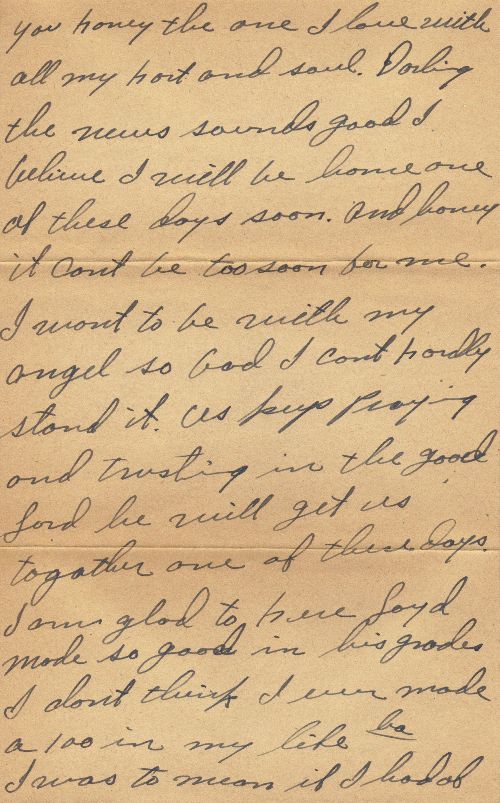 you honey the one I love with
all my hart and soul. Darling
the news sounds good I
believe I will be home one
of these days soon. And honey
it cant be too soon for me.
I want to be with my
angel so bad I cant hardly
stand it. Us keep praying
and trusting in the good
Lord he will get us
togather one of these days.
I am glad to here Loyd
made so good in his grades
I dont think I ever made
a 100 in my life ha
I was to mean if I had of